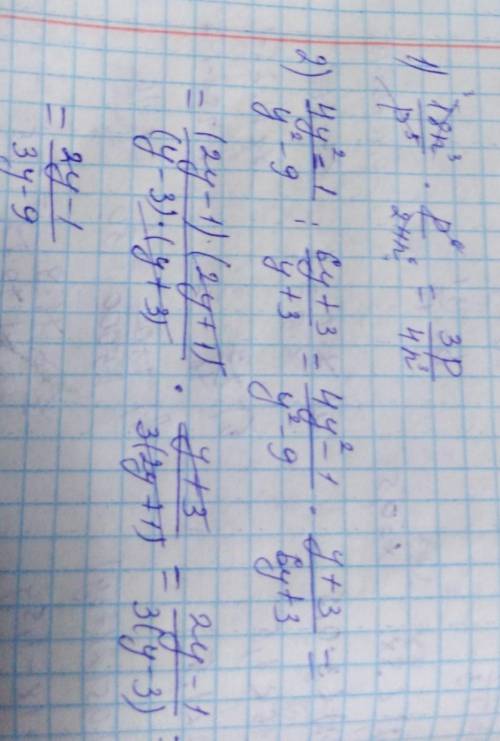 1) 18n³/p⁵ · p⁶/24n⁶ = 3p/4n³
2) 4y²-1/y²-9 : 6y+3/y+3 = 4y²-1/y²-9 · y+3/6y+3 =
= (2y-1)·(2y+1)/(y-3)·(y+3) · y+3/3(2y+1) = 2y-1/3(y-3) =
= 2y-1/3y-9